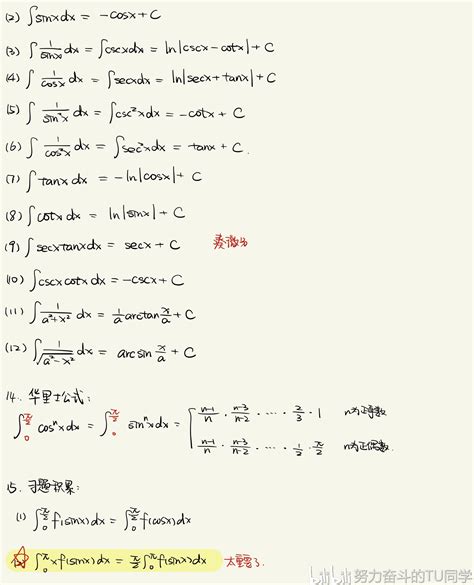 (2) ∫sinxdx = -cosx + C
(3) ∫1/sinx dx = ∫cscxdx = ln|cscx - cotx| + C
(4) ∫1/cosx dx = ∫secxdx = ln|secx + tanx| + C
(5) ∫1/sin²x dx = ∫csc²xdx = -cotx + C
(6) ∫1/cos²x dx = ∫sec²xdx = tanx + C.
(7) ∫tanxdx = -ln|cosx| + C
(8) ∫cotxdx = ln|sinx| + C
(9) ∫secxtanxdx = secx + C 凑微分
(10) ∫cscxcotxdx = -cscx + C
(11) ∫1/(a²+x²) dx = 1/a arctan x/a + C
(12) ∫1/√(a²-x²) dx = arcsin x/a + C
14. 华里士公式:
∫₀^(π/2) cosⁿxdx = ∫₀^(π/2) sinⁿxdx = { (n-1)/n · (n-3)/(n-2) · ⋯ · 2/3 · 1 n为正奇数
(n-1)/n · (n-3)/(n-2) · ⋯ · 1/2 · π/2 n为正偶数.
15. 习题积累:
(1) ∫₀^(π/2) f(sinx)dx = ∫₀^(π/2) f(cosx)dx
∫₀^π xf(sinx)dx = π/2 ∫₀^π f(sinx)dx 太重要了.
知乎 @努力奋斗的TU同学